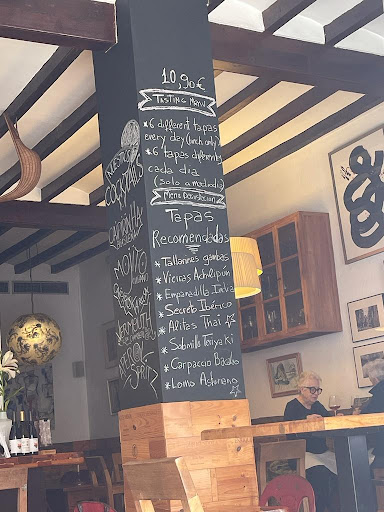 10,90€
Tasting Menu
*6 different tapas
every day (lunch only)
*6 tapas diferentes
cada dia
(solo a mediodia)
Menu Degustacion
Tapas
Recomendadas
*Tallarines gambas
*Vieiras Achilipún
*Empanadilla India
*Secreto Ibérico
*Alitas Thai
*Solomillo Teriyaki
*Carpaccio Bacalao
*Lomo Asturiano
COCKTAILS
MOJITO
VERMOUTH
APEROL
SPRITZ